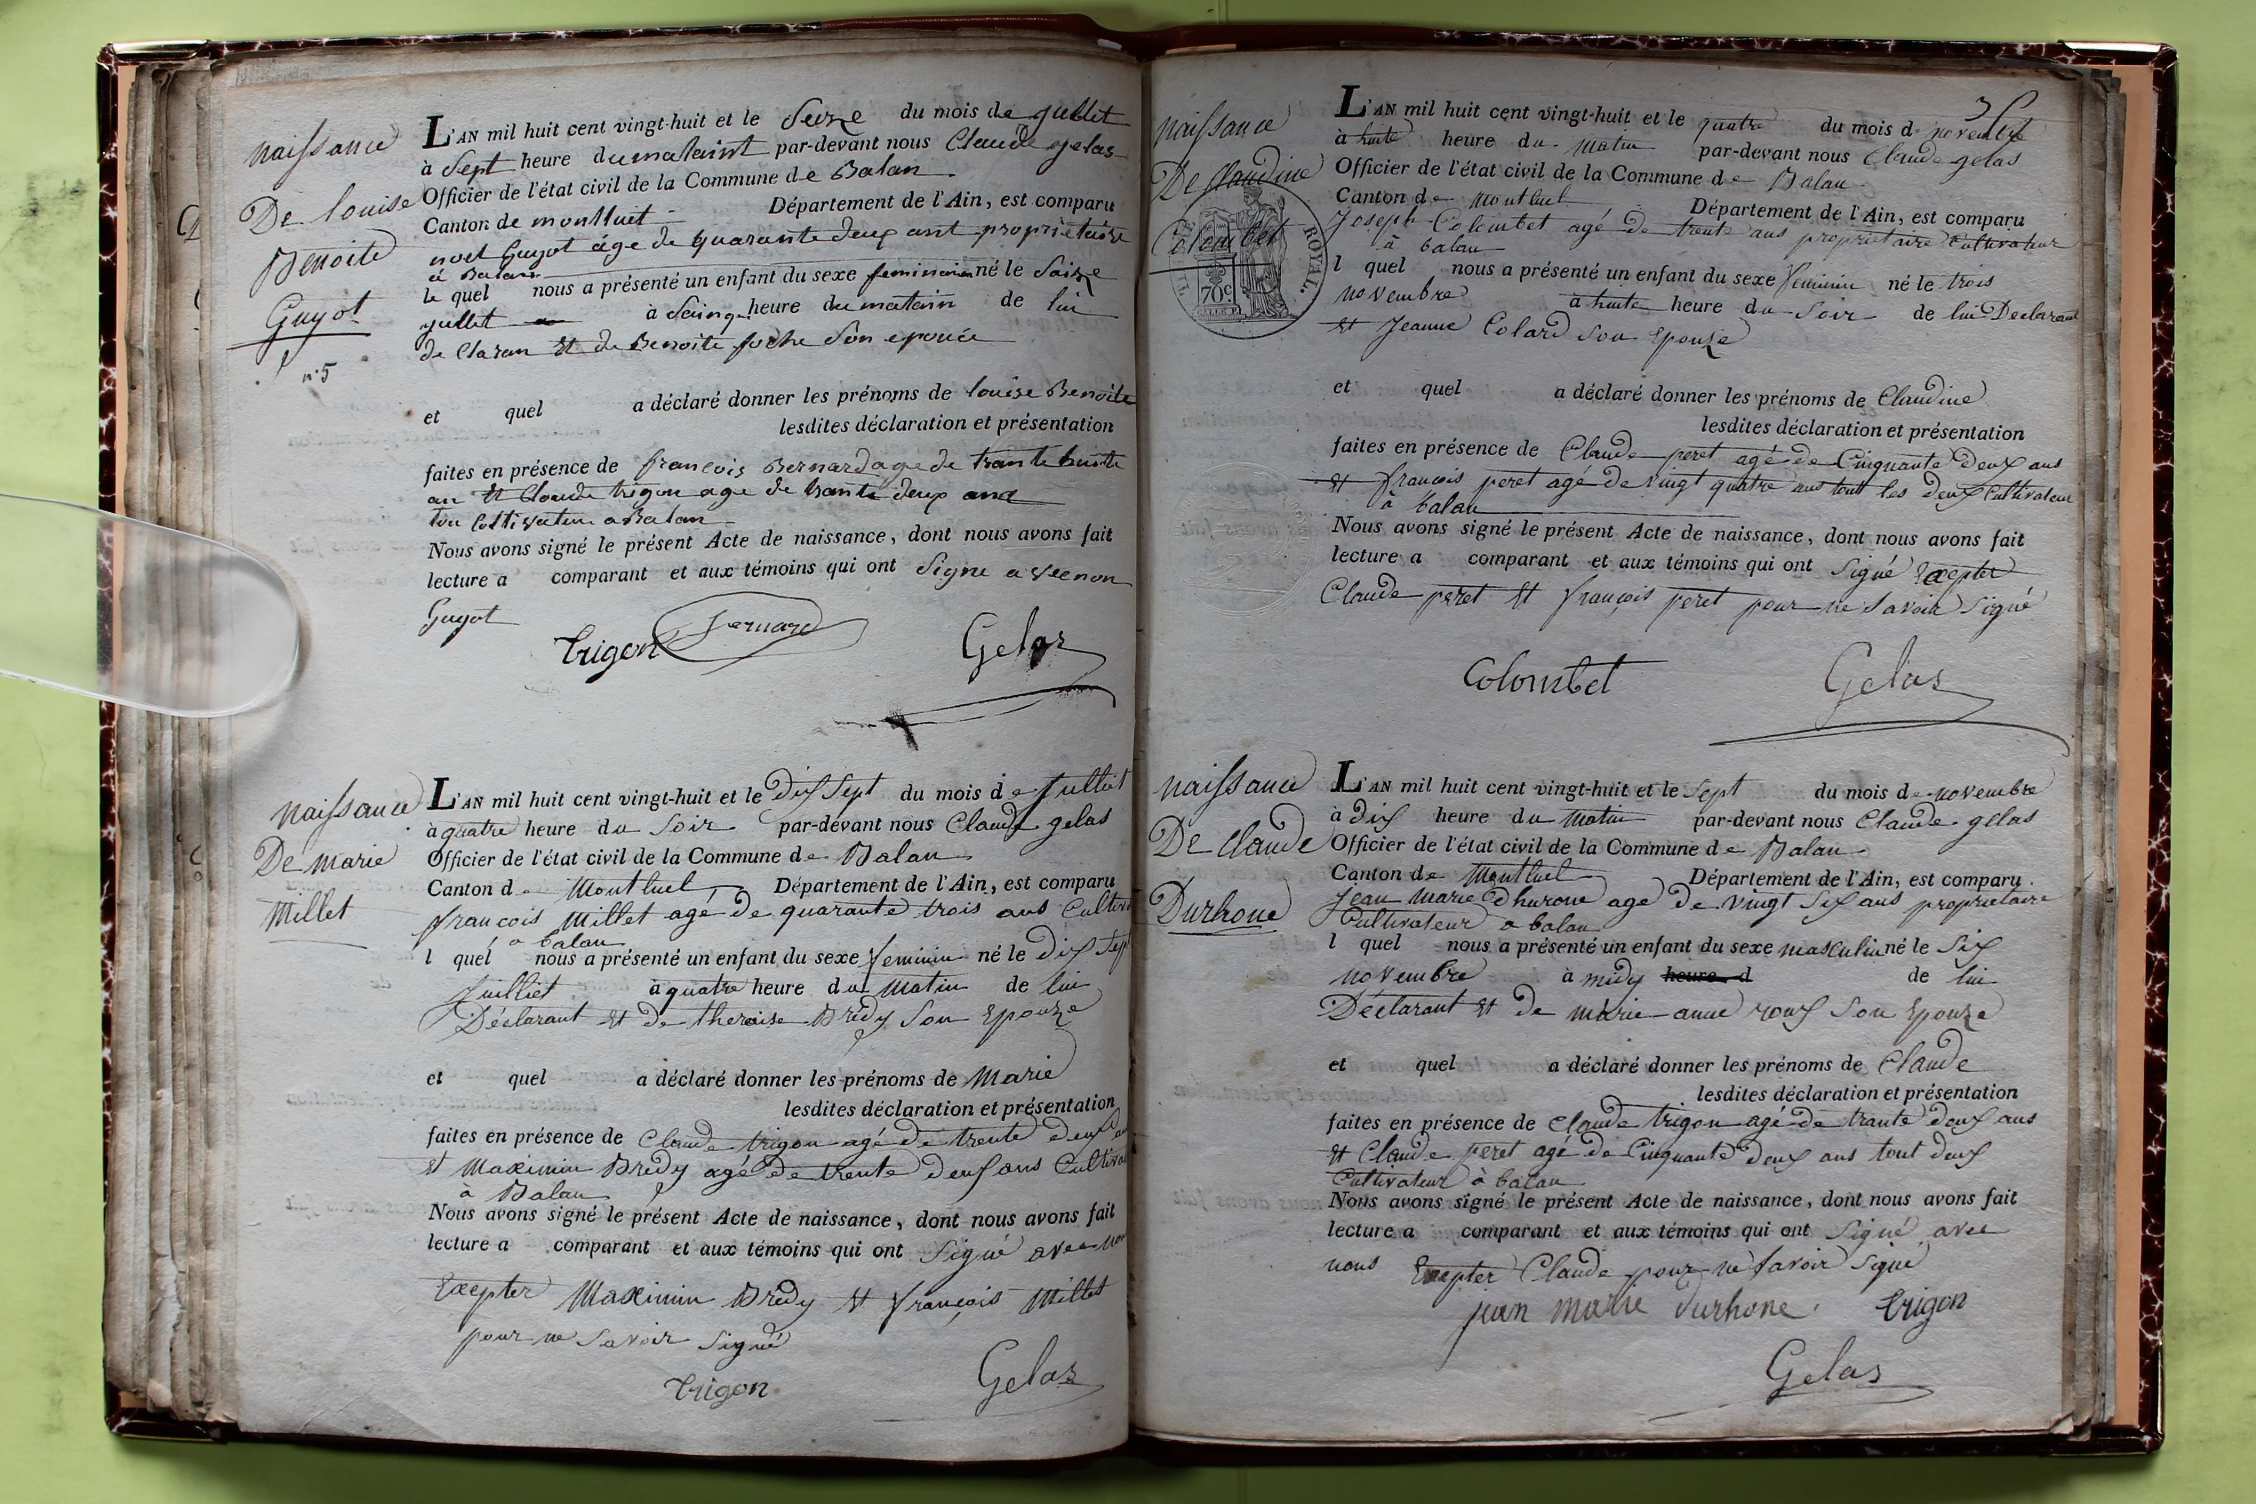 naissance
De louise
Benoite
Guyot
n.5
L'AN mil huit cent vingt-huit et le Seize du mois de Jullet
à Sept heure du mataint par-devant nous Claude gelas
Officier de l'état civil de la Commune de Balan
Canton de montluit Département de l'Ain, est comparu
noel Guyot âge de quarante deux ant propriètaire
à Balan
le quel nous a présenté un enfant du sexe feminin né le Saize
jullet à Sainq heure du matain de lui
de Claran et de Benoite foche Son epouée
et quel a déclaré donner les prénoms de louise Benoite
lesdites déclaration et présentation
faites en présence de francois Bernard age de trante huite
an et Claude trigon age de trante deux ans
tou Coltivateur a Balan
Nous avons signé le présent Acte de naissance, dont nous avons fait
lecture a comparant et aux témoins qui ont Signe a veenon
Guyot
trigon Bernard Gelas
naissance
De marie
Millet
L'AN mil huit cent vingt-huit et le dix Sept du mois de Julliet
à quatre heure du Soir par-devant nous Claude gelas
Officier de l'état civil de la Commune de Balan
Canton d Montluel Département de l'Ain, est comparu
françois Millet agé de quarante trois ans Cultiv
a balan
l quel nous a présenté un enfant du sexe feminin né le dix Sept
Juilliet à quatre heure du matin de lui
Déclarant et de theraise Brédy Son Epouze
et quel a déclaré donner les prénoms de Marie
lesdites déclaration et présentation
faites en présence de Claude trigon agé de trente deux an
et Maximin Bredy agé de trente deux ans Cultiva
à Balan
Nous avons signé le présent Acte de naissance, dont nous avons fait
lecture a comparant et aux témoins qui ont Signé avec nou
Excepter Maximin Bredy et françois Millet
pour ne Savoir Signé
trigon Gelas
naissance
De Claudine
Colombet
ROYAL.
70c
L'AN mil huit cent vingt-huit et le quatre du mois d novembre
à huite heure du matin par-devant nous Claude gelas
Officier de l'état civil de la Commune de Balan
Canton de Montluel Département de l'Ain, est comparu
Joseph Colombet agé de trente ans propriétaire Cultivateur
à balan
l quel nous a présenté un enfant du sexe feminin né le trois
novembre à huite heure du Soir de lui Declarant
et Jeanne Colard Son Epouze
et quel a déclaré donner les prénoms de Claudine
lesdites déclaration et présentation
faites en présence de Claude peret agé de Cinquante deux ans
et françois peret agé de vingt quatre ans tout les deux Cultivateur
à balan
Nous avons signé le présent Acte de naissance, dont nous avons fait
lecture a comparant et aux témoins qui ont Signé Excepter
Claude peret et françois peret pour ne Savoir Signé
Colombet Gelas
naissance
De Claude
Durhone
L'AN mil huit cent vingt-huit et le Sept du mois de novembre
à dix heure du matin par-devant nous Claude gelas
Officier de l'état civil de la Commune de Balan
Canton de Montluel Département de l'Ain, est comparu
Jean Marie Dhurone age de vingt Six ans propriétaire
Cultivateur a balan
l quel nous a présenté un enfant du sexe masculin né le Six
novembre à midy heure d de lui
Déclarant et de marie anne roux Son Epouze
et quel a déclaré donner les prénoms de Claude
lesdites déclaration et présentation
faites en présence de Claude trigon agé de trante deux ans
et Claude peret agé de Cinquante deux ans tout deux
Cultivateur à balan
Nous avons signé le présent Acte de naissance, dont nous avons fait
lecture a comparant et aux témoins qui ont Signé avec
nous Excepter Claude pour ne savoir Signé
jean marie durhone trigon
Gelas